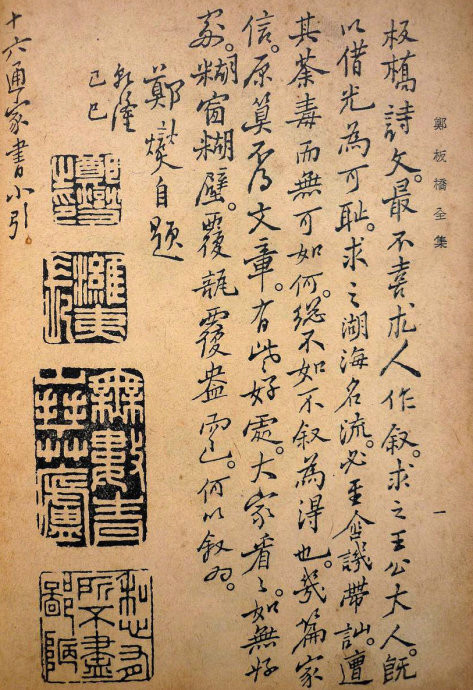 鄭板橋全集
一
板橋詩文。最不喜求人作叙。求之王公大人。既
以借光為可恥。求之湖海名流。必至含譏帶訕。遭
其荼毒而無可如何。總不如不叙為得也。幾篇家
信。原算不得文章。有些好處。大家看看。如無好
處。糊窗糊壁。覆瓿覆盎而已。何以叙為。
鄭燮自題
乾隆
己巳
鄭燮之印
濰夷長
無數青山拜草廬
私心有所不盡鄙陋
十六通家書小引